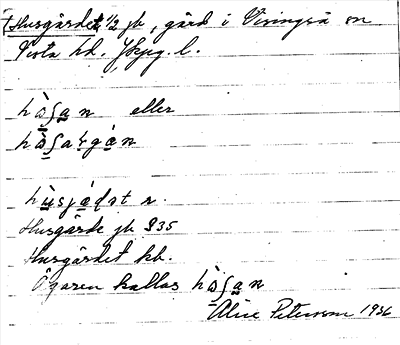 (Husgärdet 1/2 jb, gård i Visingsö sn
Vista hd. Jkpg. l.
hὰʃan eller
hὰʃargán
hùsjáḍat n.
Husgärde jb 835
Husgärdet kb.
Ägaren kallas hὰʃan
Alice Peterson 1936